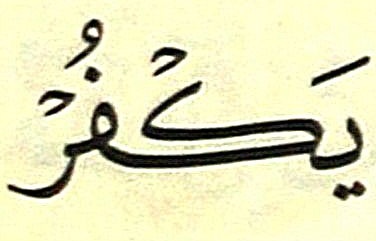 يَكْفُرْ